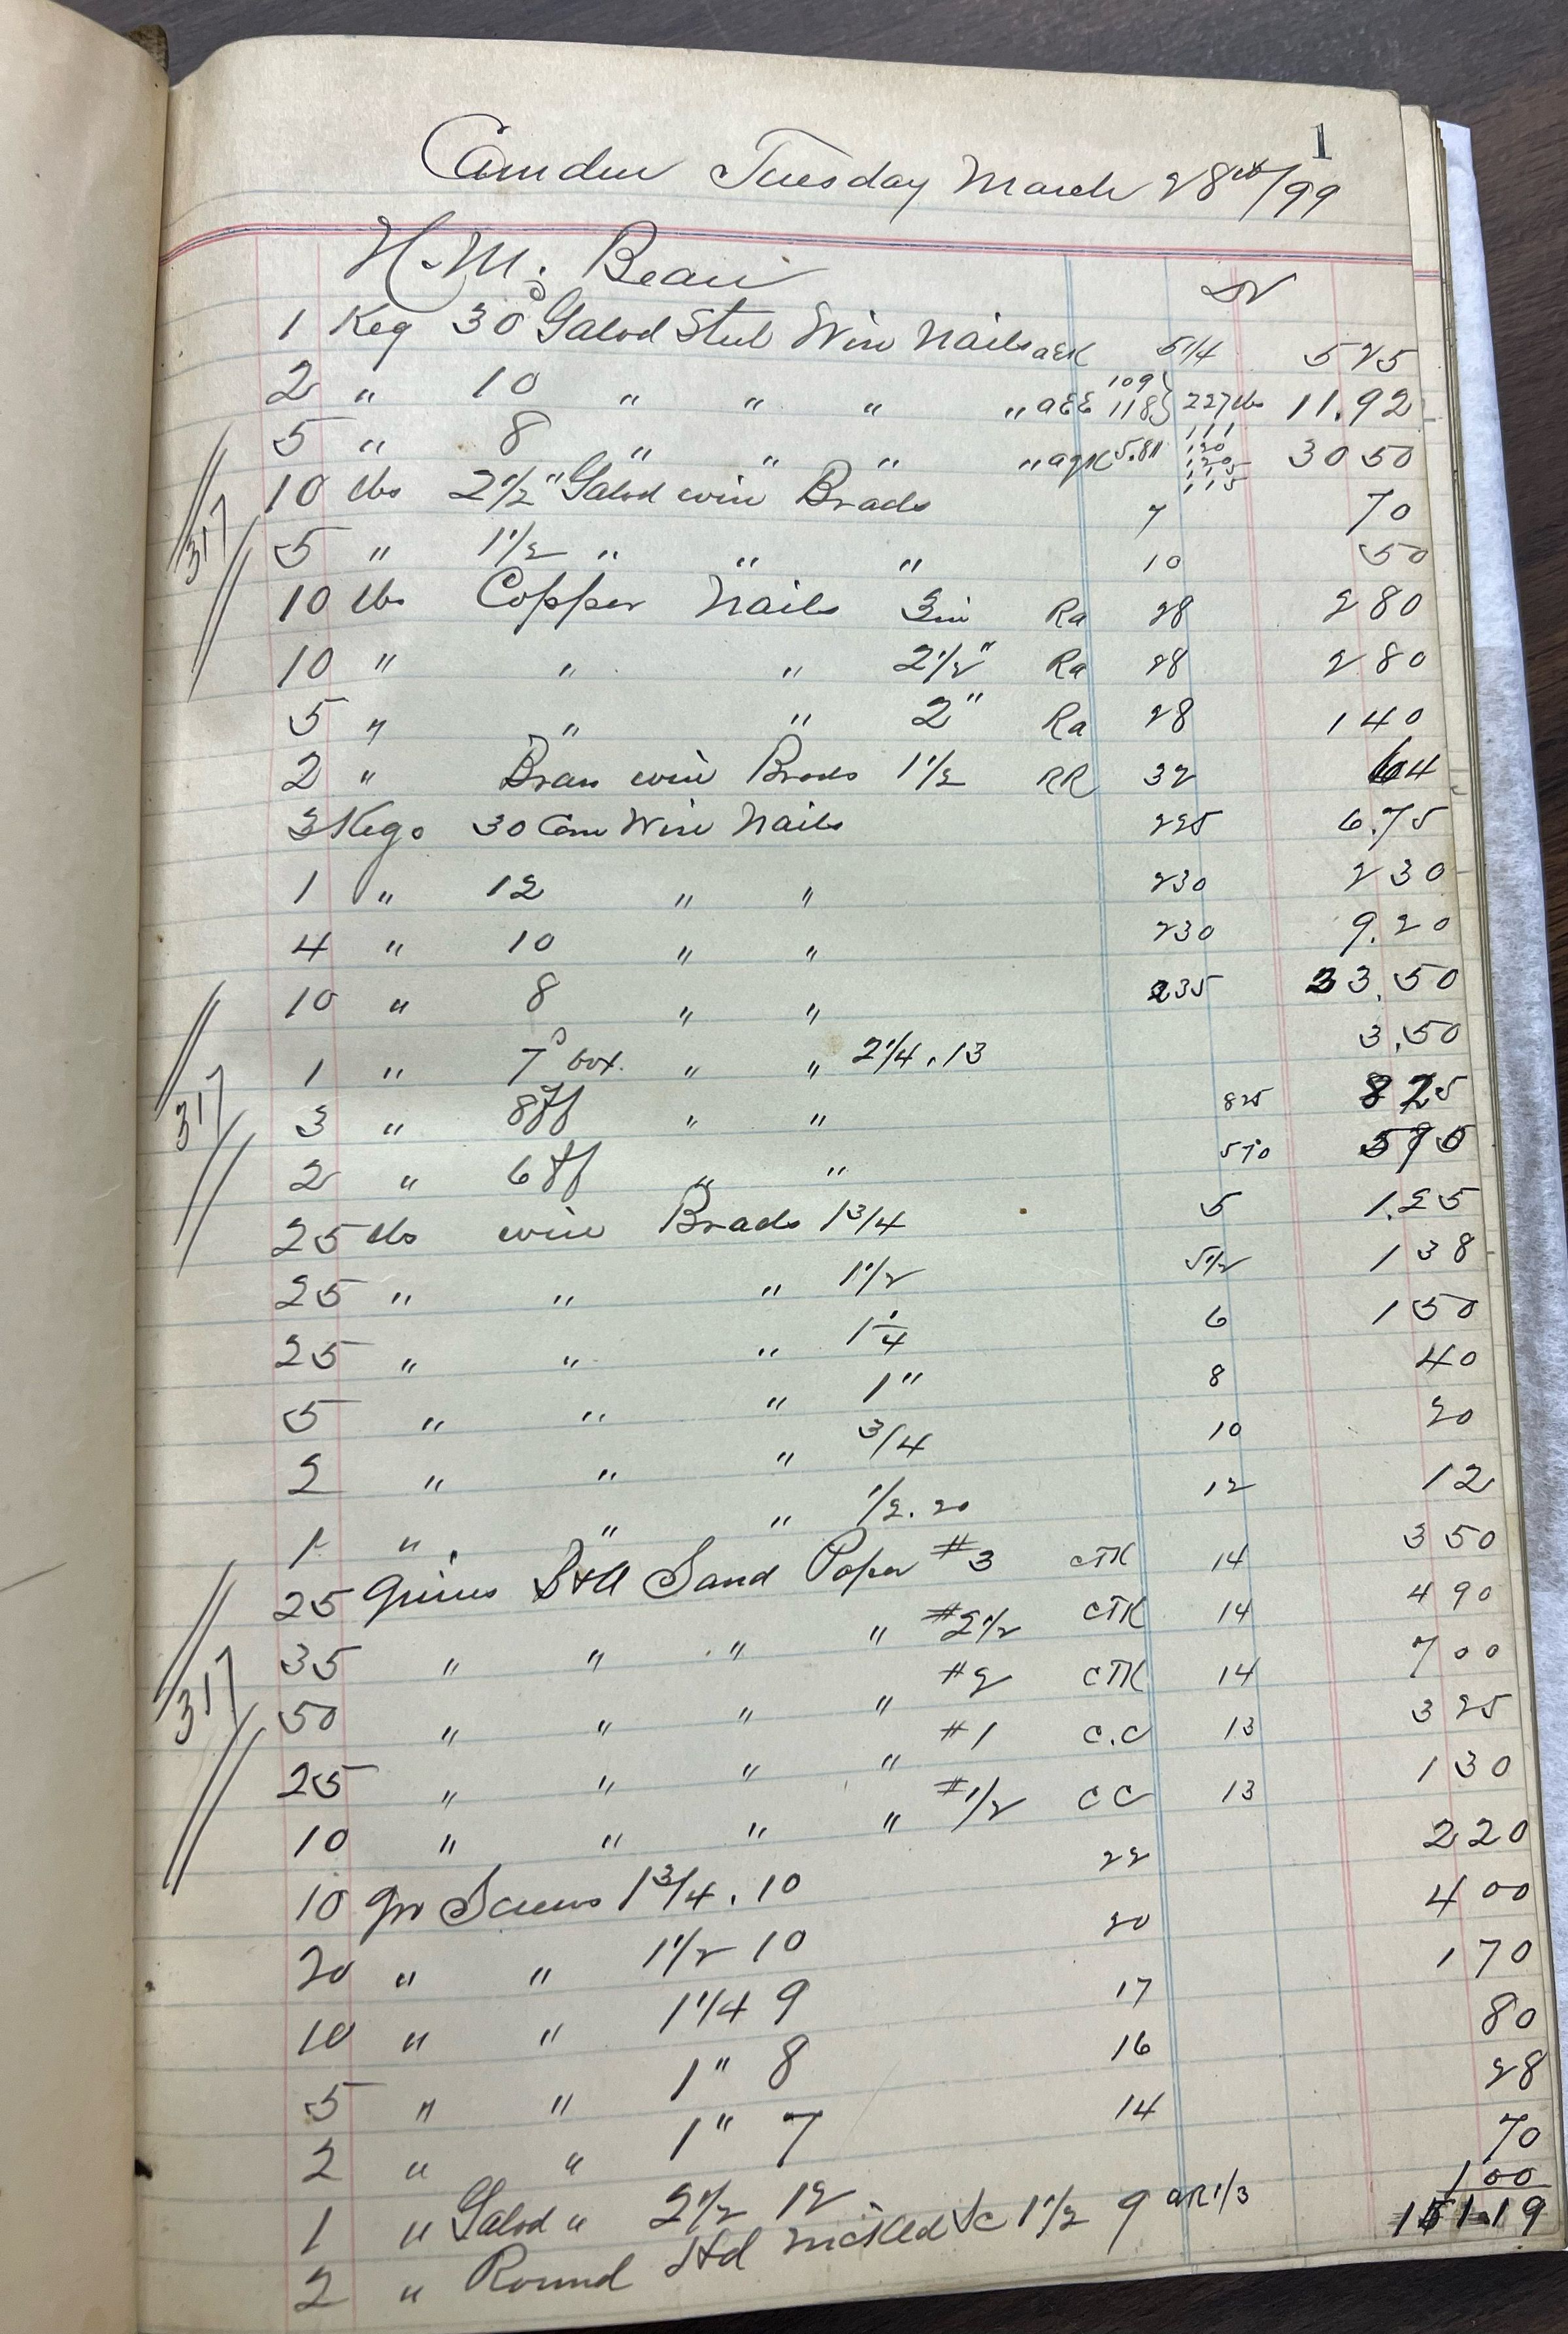 1
Camden Tuesday March 28th/99
H. M. Bean Dr
1 Keg 30d Galvd Steel Wire Nails aEK 5 1/4 5 25
2 " 10 " " " " aEE 109 118} 227 lbs 11.92
5 " 8 " " " " 5.81 111 120 120 115 115 30 50
10 lbs 2 1/2" Galvd wire Brads 7 70
317
5 " 1 1/2 " " " 10 50
10 lbs Copper Nails 3in Ra 28 2 80
10 " " " 2 1/2" Ra 28 2 80
5 " " " 2" Ra 28 1 40
2 " Brass wire Brads 1 1/2 RR 32 64
3 Kegs 30 Com Wire Nails 225 6.75
1 " 12 " " 230 2 30
4 " 10 " " 230 9.20
10 " 8 " " 235 23.50
1 " 7d box. " " 2 1/4 . 13 3.50
317
3 " 8 " " 825 8 25
2 " 6 " " 570 5
25 lbs wire Brads 1 3/4 5 1.25
25 " " " 1 1/2 5 1/2 1 38
25 " " " 1 1/4 6 1 50
5 " " " 1" 8 40
2 " " " 3/4 10 20
1 " " " 1/2 . 20 12 12
25 Quires B&A Sand Paper #3 CTK 14 3 50
35 " " " " #2 1/2 CTK 14 4 90
317
50 " " " " #2 CTK 14 7 00
25 " " " " #1 C.C 13 3 25
10 " " " " #1/2 CC 13 1 30
10 Gro Screws 1 3/4 . 10 22 2 20
20 " " 1 1/2 10 20 4 00
10 " " 1 1/4 9 17 1 70
5 " " 1" 8 16 80
2 " " 1" 7 14 28
1 " Galvd " 2 1/2 12 70
2 " Round Hd Nickled Sc 1 1/2 9 aR 1/3 1 00
151.19